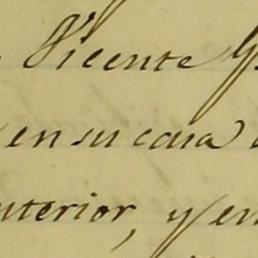 Vicente
en su casa
anterior, y en